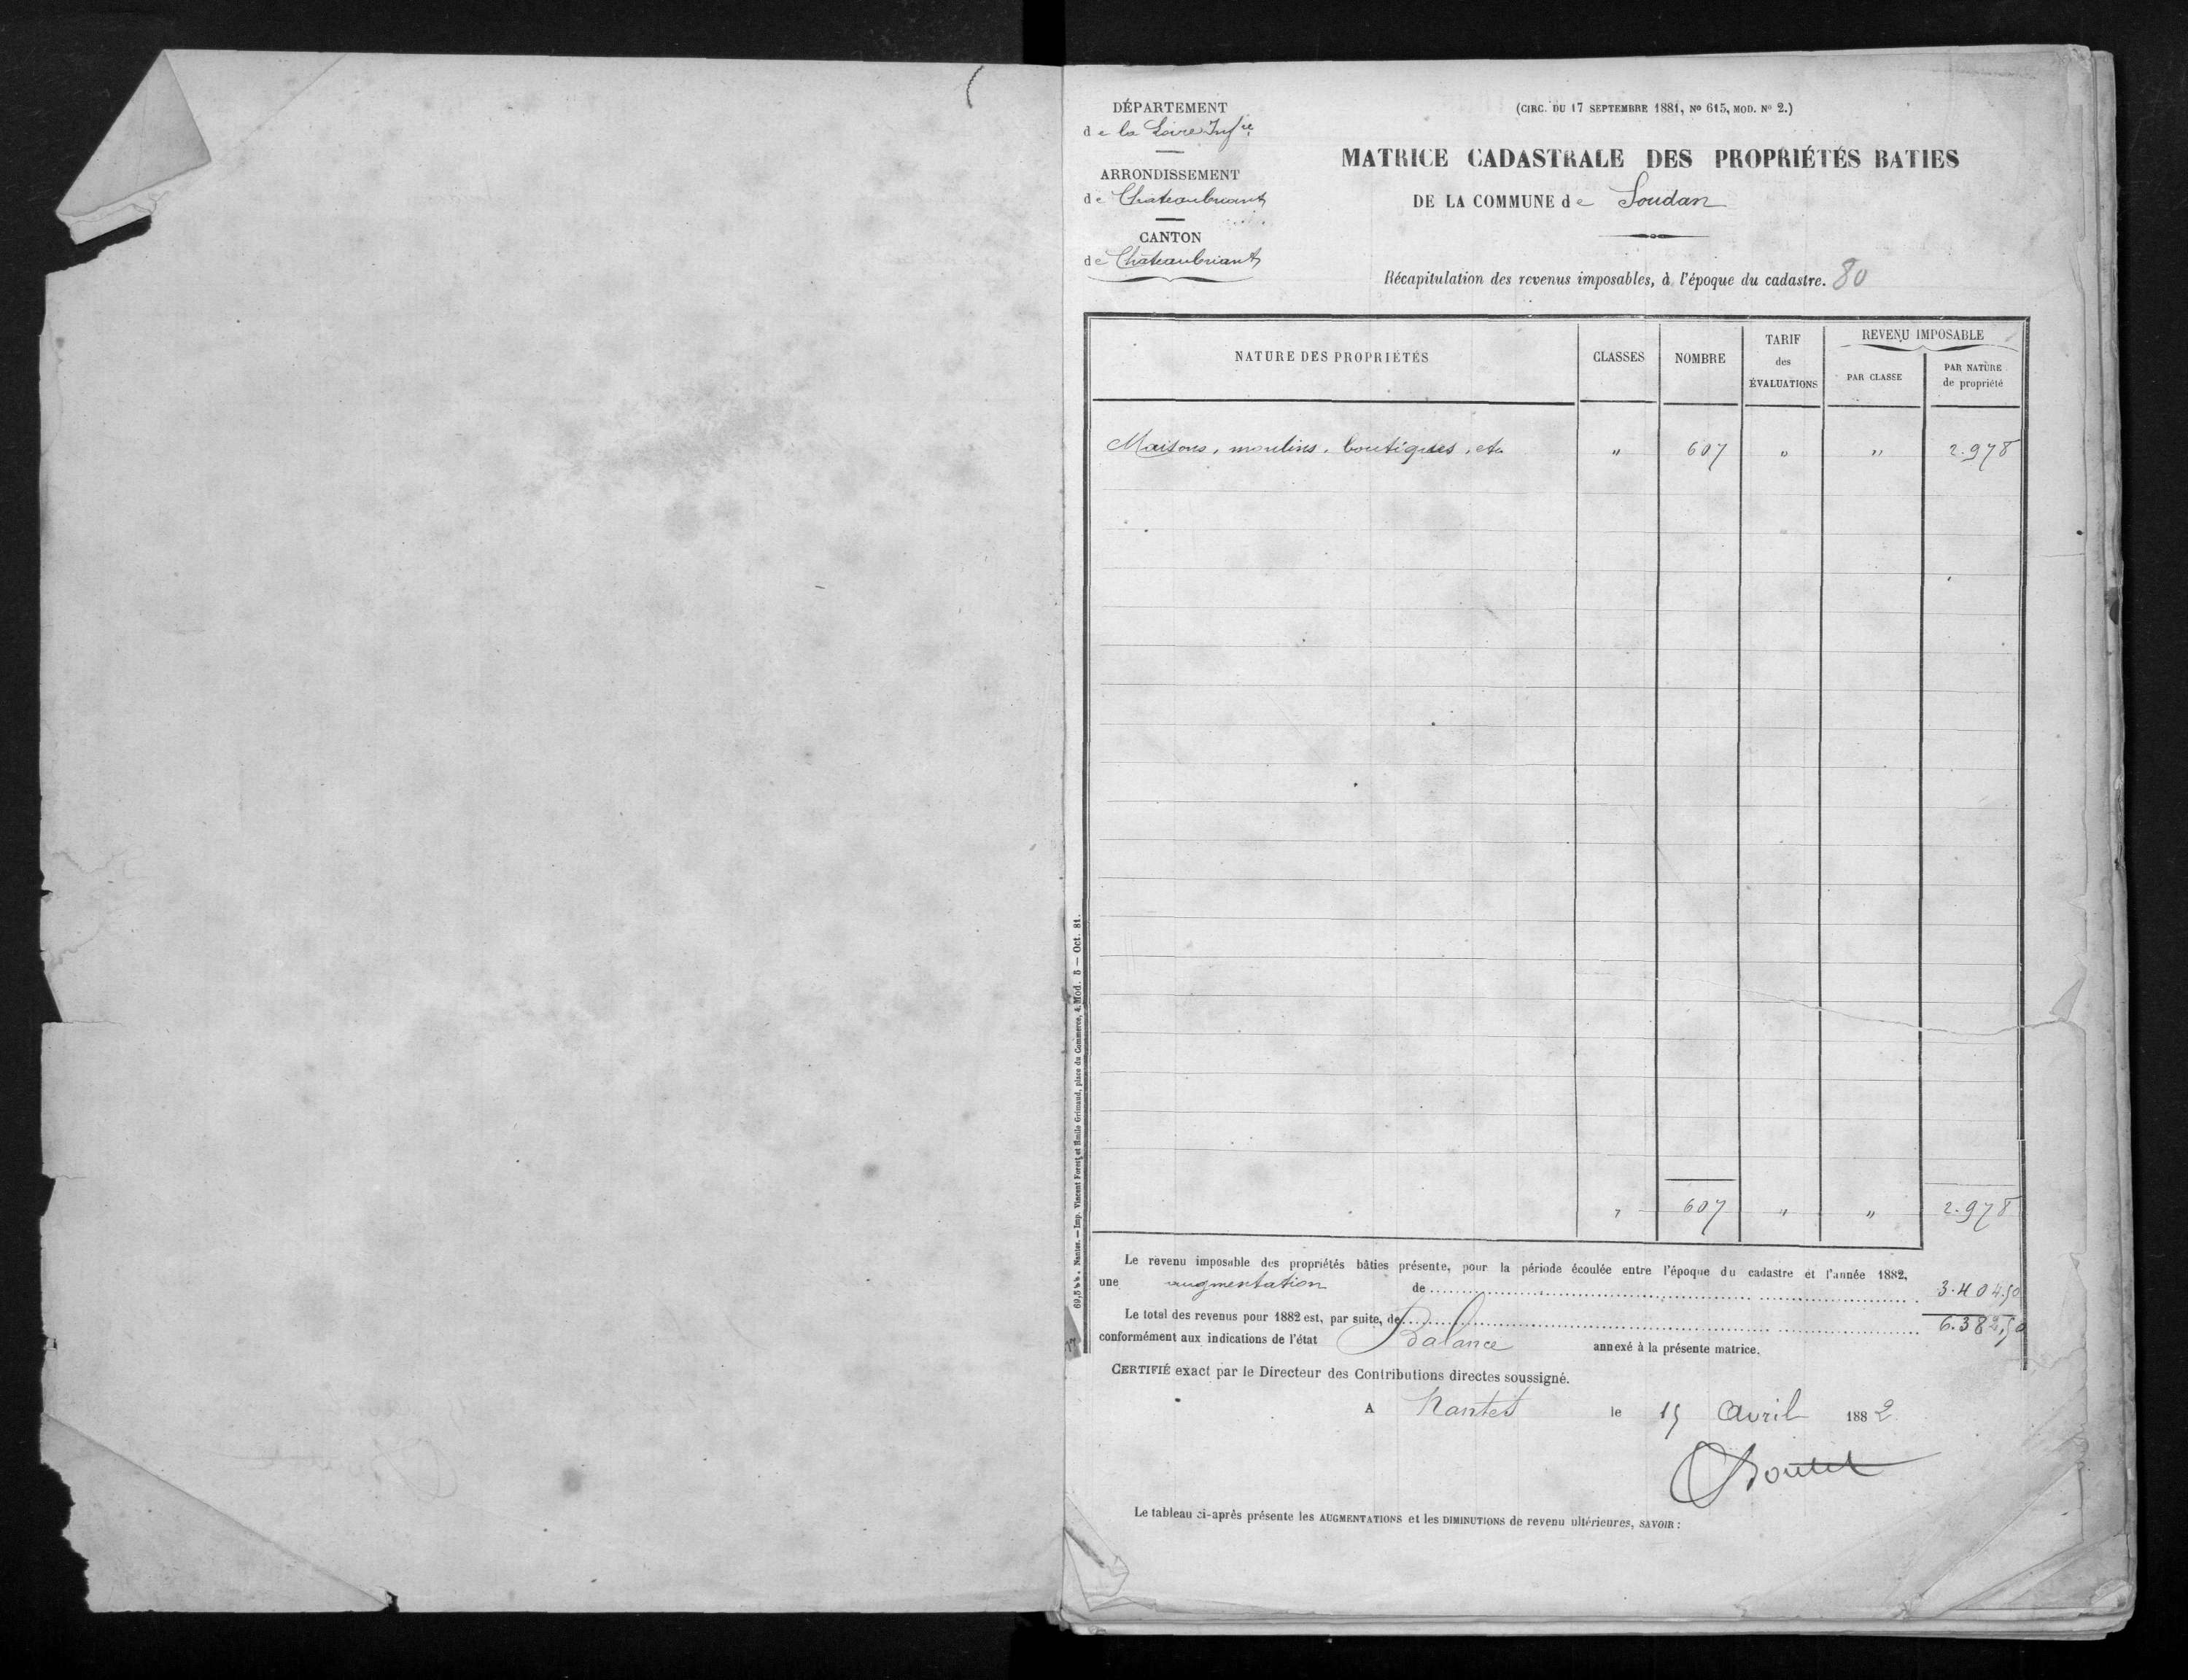 DÉPARTEMENT
de la Loire Infre
ARRONDISSEMENT
de Chateaubriant
CANTON
de Châteaubriant
(CIRC. DU 17 SEPTEMBRE 1881, No 615, MOD. No 2.)
MATRICE CADASTRALE DES PROPRIÉTÉS BATIES
DE LA COMMUNE de Soudan
Récapitulation des revenus imposables, à l'époque du cadastre. 80
NATURE DES PROPRIÉTÉS CLASSES NOMBRE TARIF des ÉVALUATIONS REVENU IMPOSABLE
PAR CLASSE PAR NATURE de propriété
Maisons, moulins, boutiques, etc " 607 " " 2.978
" 607 " " 2.978
Le revenu imposable des propriétés bâties présente, pour la période écoulée entre l'époque du cadastre et l'année 1882,
une augmentation de 3.404,50
Le total des revenus pour 1882 est, par suite, de 6.382,50
conformément aux indications de l'état Balance annexé à la présente matrice.
CERTIFIÉ exact par le Directeur des Contributions directes soussigné.
A Nantes le 15 Avril 1882
Le tableau ci-après présente les AUGMENTATIONS et les DIMINUTIONS de revenu ultérieures, SAVOIR :
Nantes. — Imp. Vincent Forest et Emile Grimaud, place du Commerce, 4. Mod. 5 — Oct. 81.